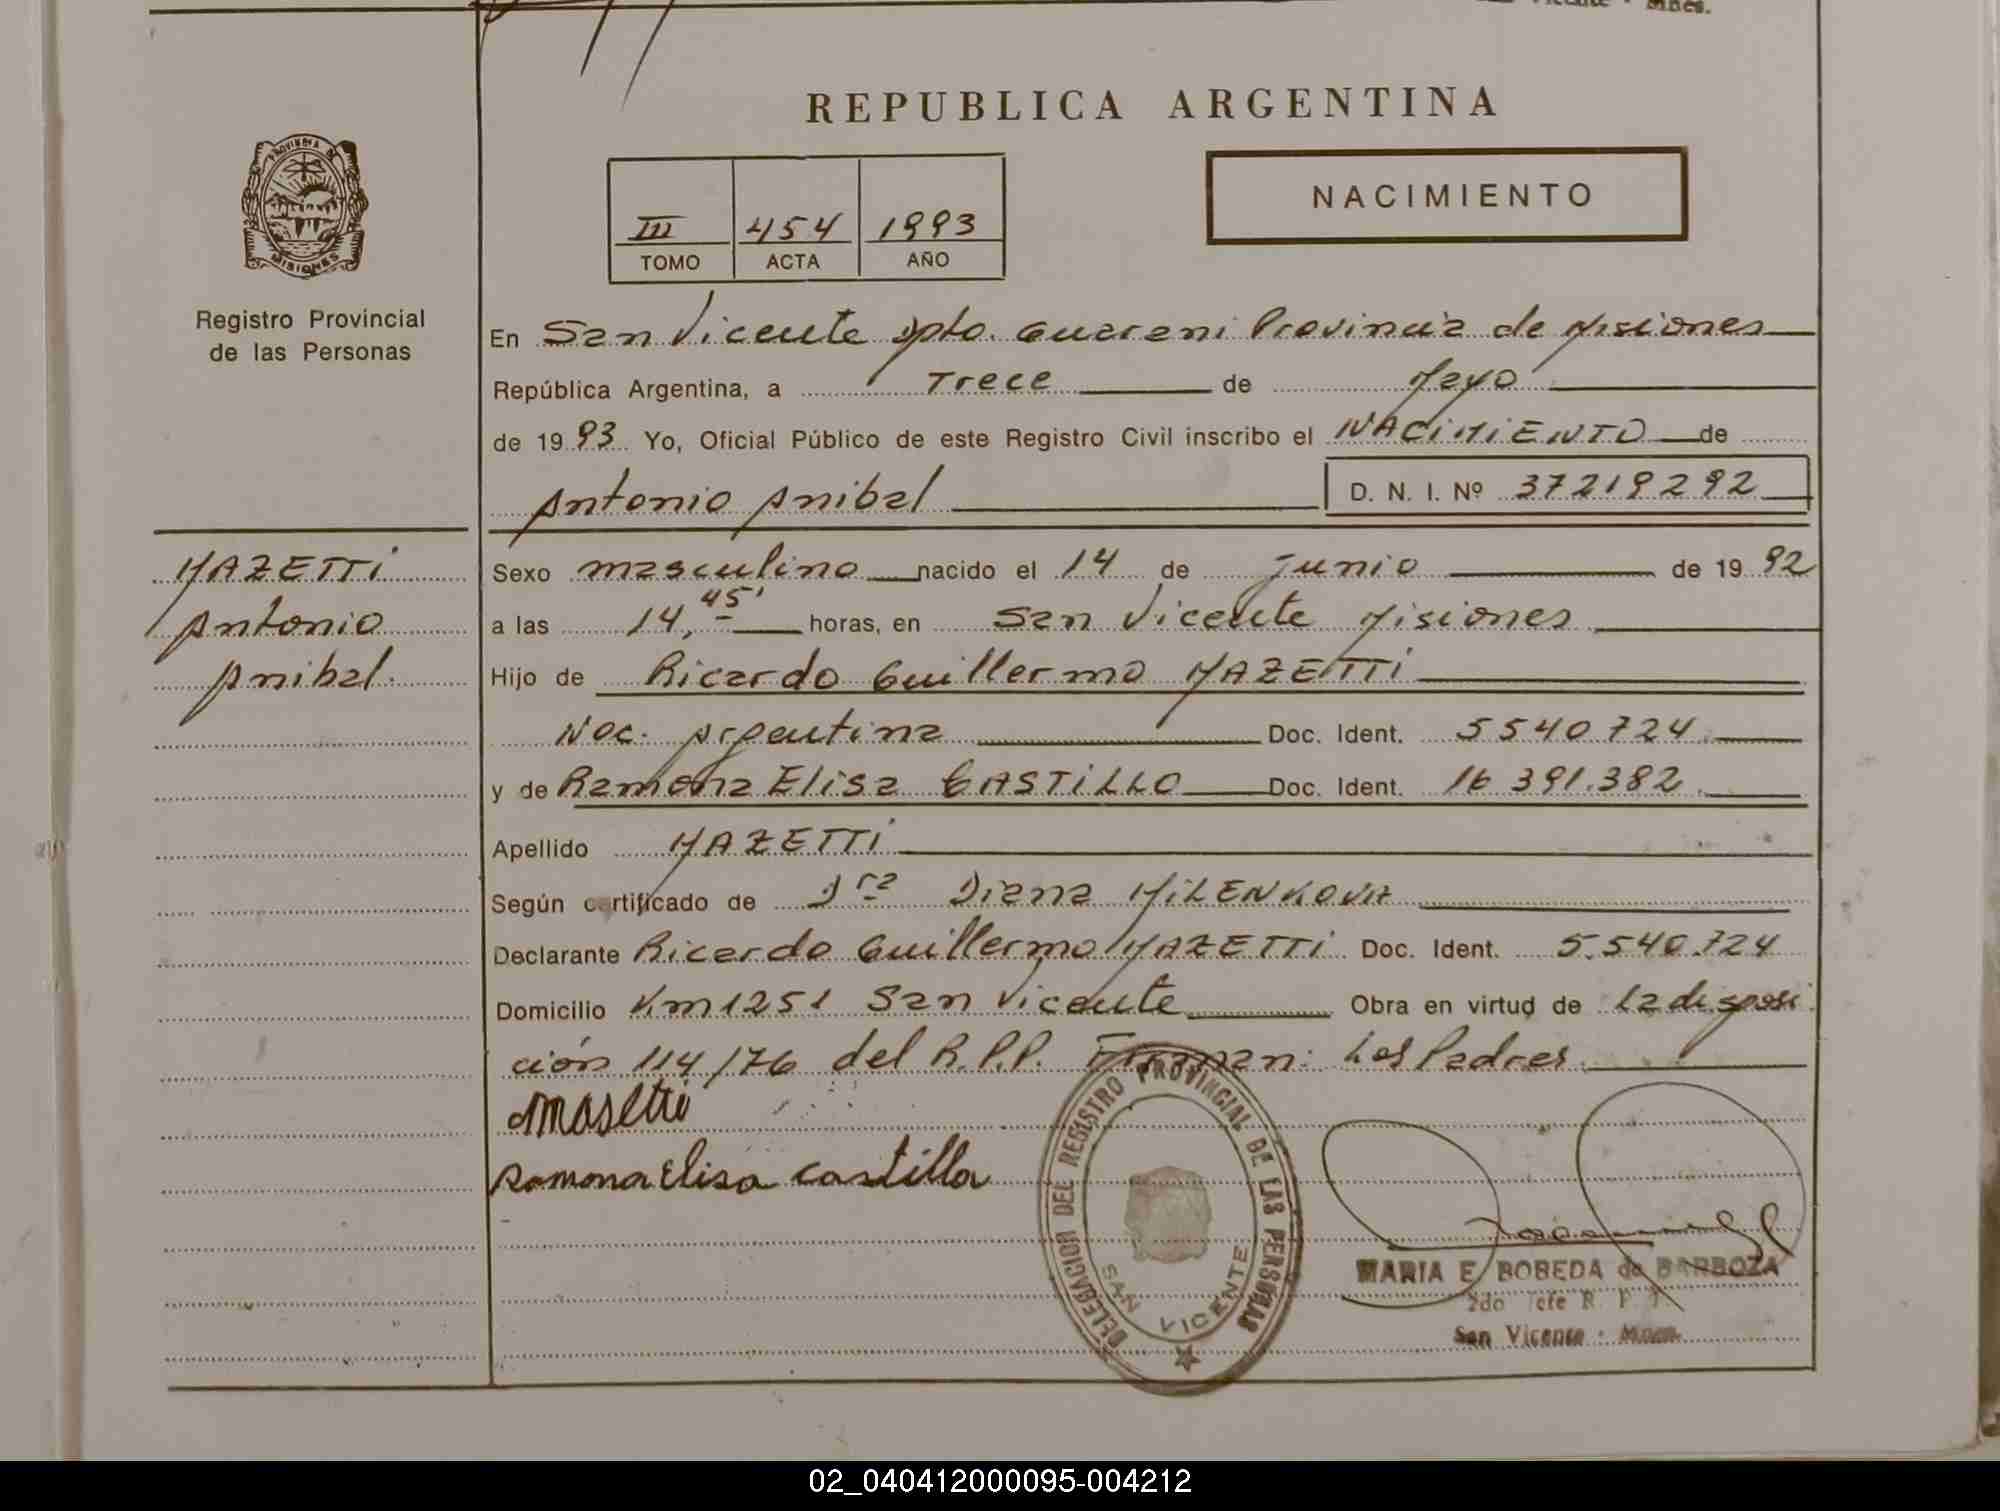 REPUBLICA ARGENTINA
PROVINCIA DE
MISIONES
Registro Provincial
de las Personas
III 454 1993
TOMO ACTA AÑO
NACIMIENTO
En San Vicente Dpto. Guarani Provincia de Misiones
República Argentina, a Trece de Mayo
de 1993 Yo, Oficial Público de este Registro Civil inscribo el NACIMIENTO de
Antonio Anibal D. N. I. Nº 37219292
MAZETTI
Antonio
Anibal.
Sexo masculino nacido el 14 de junio de 1992
a las 14,45' horas, en San Vicente Misiones
Hijo de Ricardo Guillermo MAZETTI
Nac. Argentina Doc. Ident. 5540724.
y de Ramona Elisa CASTILLO Doc. Ident. 16 391.382.
Apellido MAZETTI
Según certificado de Dra Diana MILENKOVA
Declarante Ricardo Guillermo MAZETTI Doc. Ident. 5.540.724
Domicilio Km 1251 San Vicente Obra en virtud de La disposi
ción 114/76 del R.P.P. Firman: Los Padres
Masetti
Ramona Elisa Castilla
DELEGACION DEL REGISTRO PROVINCIAL DE LAS PERSONAS
SAN VICENTE
MARIA E BOBEDA de BARBOZA
2do Jefe R. P.
San Vicente - Mnes.
02_040412000095-004212